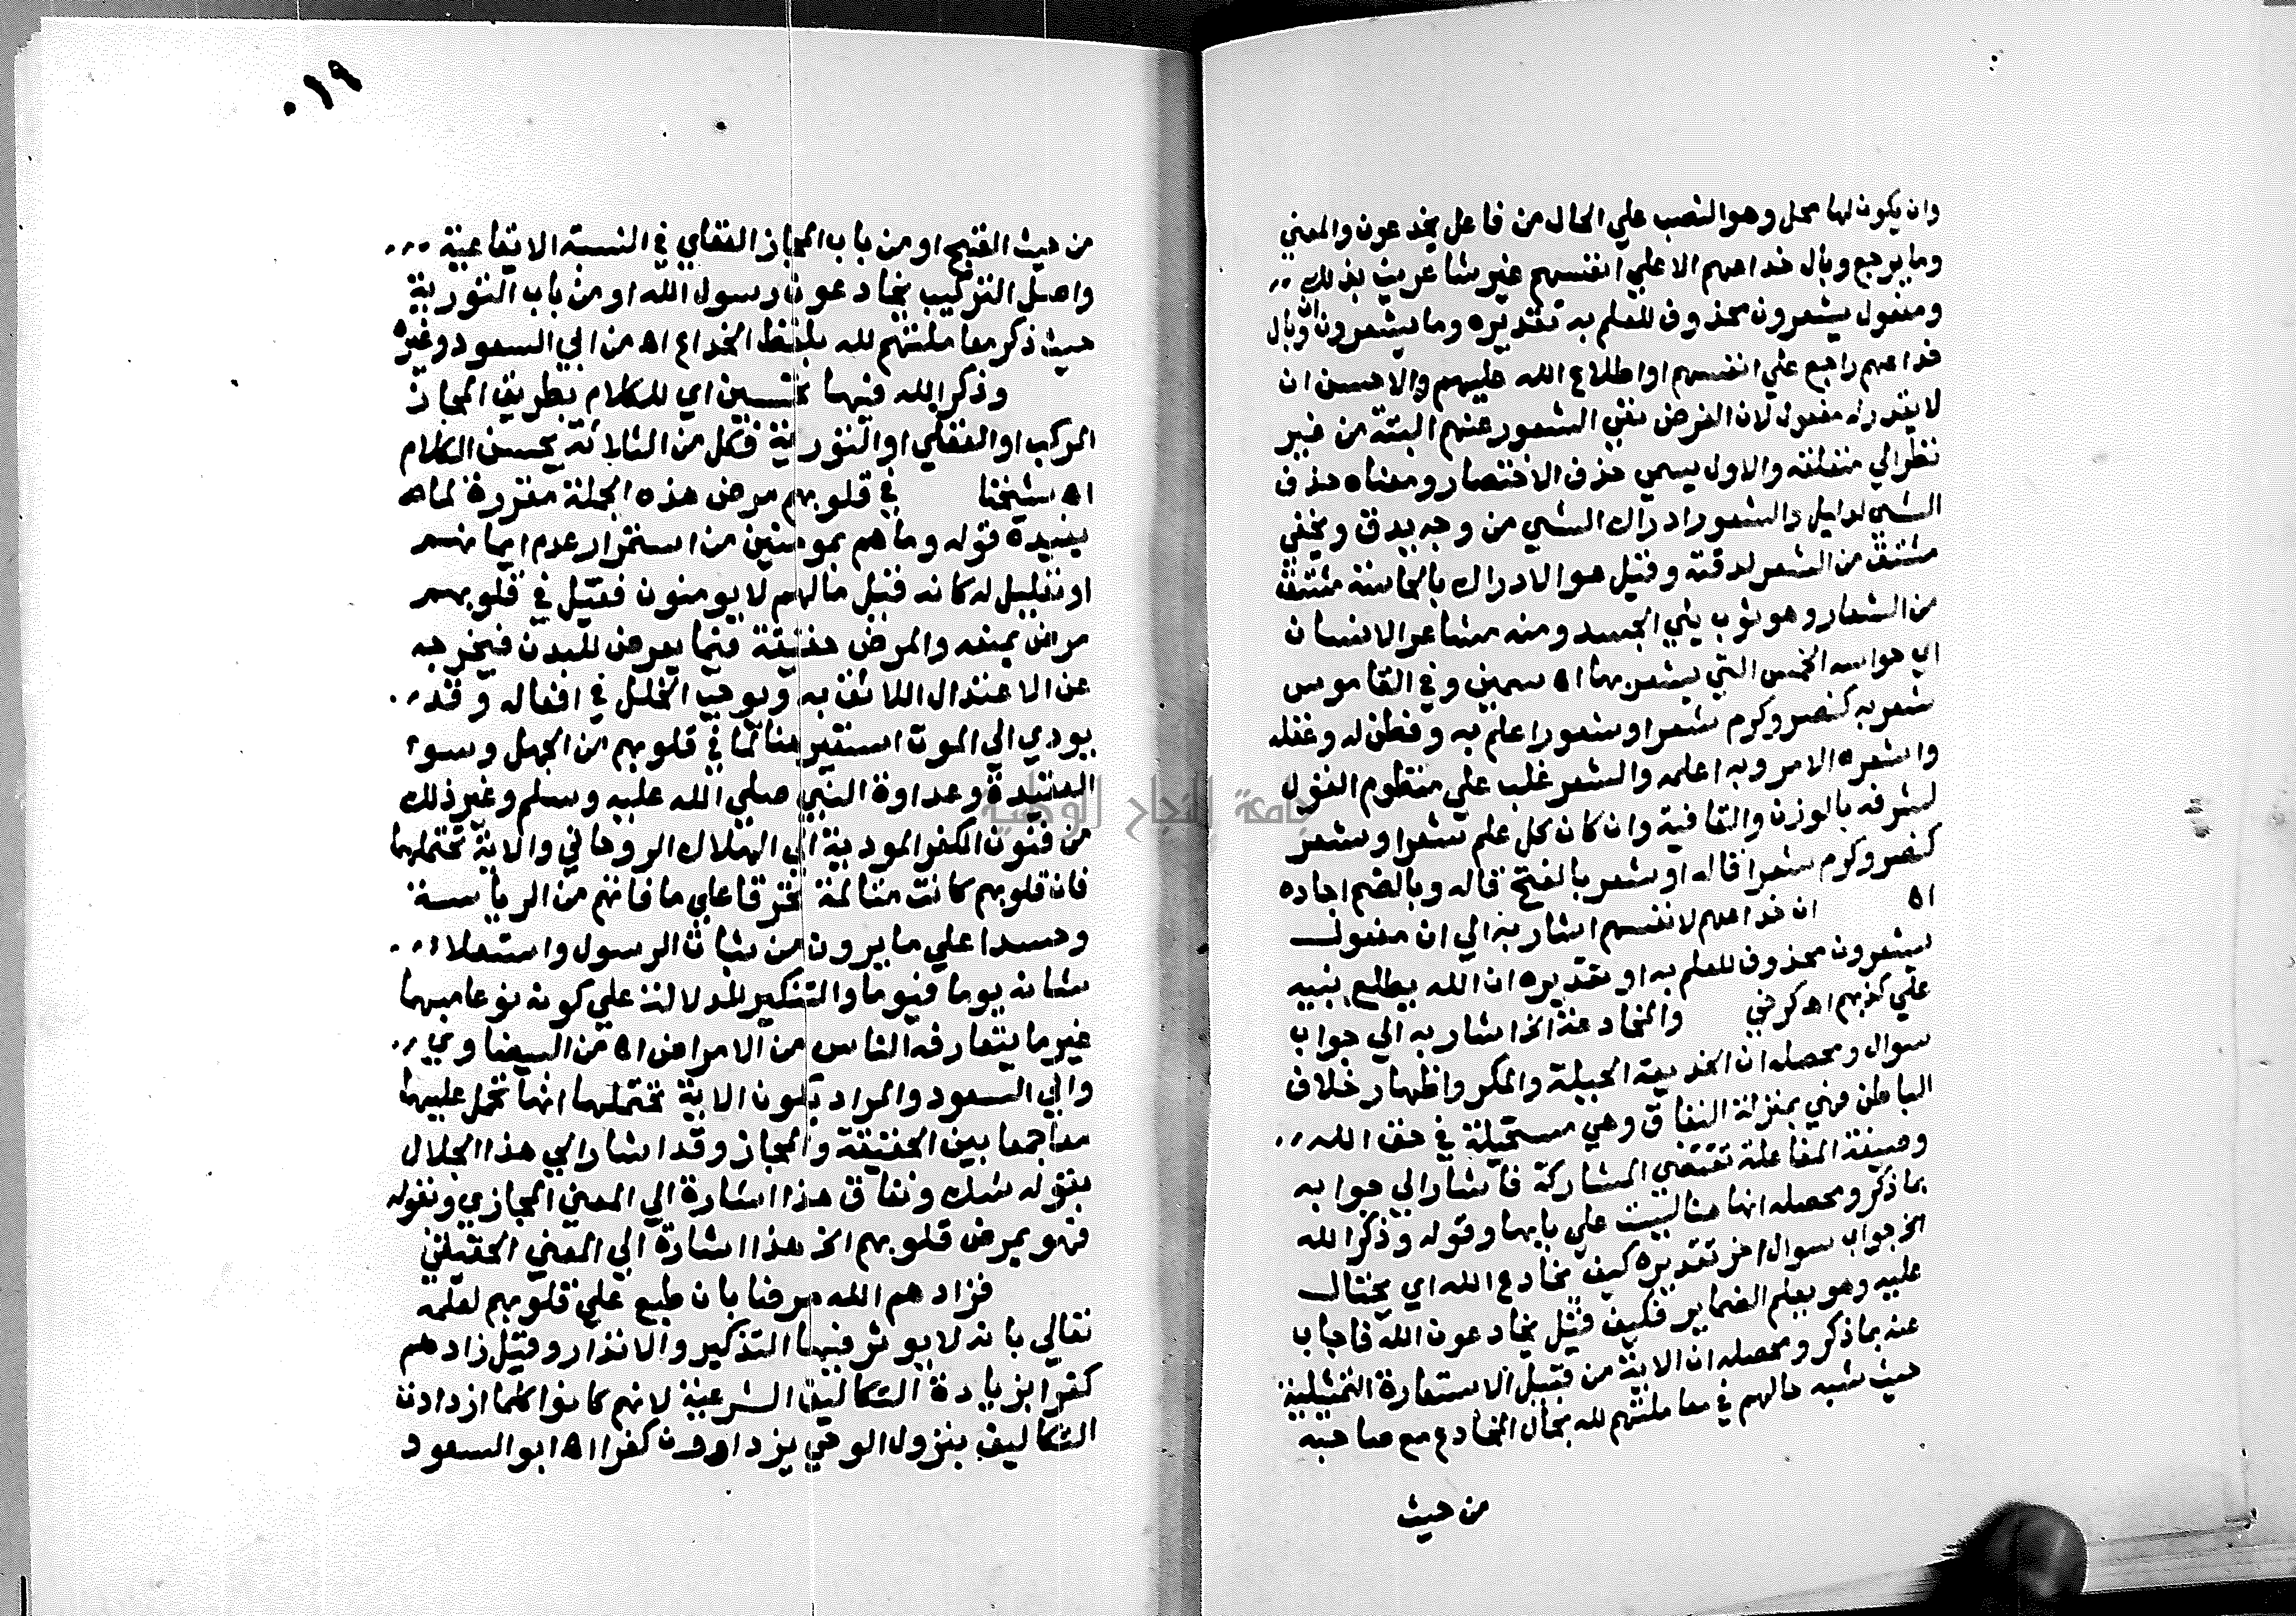 وان يكون لها محل وهو النصب علي الحال من فاعل يخدعون والمعني
وما يرجع وبال خداعهم الا علي انفسهم غير شاعرين بذلك
ومفعول يشعرون محذوف للعلم به تقديره وما يشعرون ان وبال
خداعهم راجع علي انفسهم او اطلاع الله عليهم والاحسن ان
لا يقدر له مفعول لان الغرض نفي الشعور عنهم البتة من غير
نظر الي متعلقه والاول يسمي حذف الاختصار ومعناه حذف
الشي لدليل والشعور ادراك الشي من وجه يدق ويخفي
مشتق من الشعر لدقته وقيل هو الادراك بالحاسة مشتق
من الشعار وهو ثوب يلي الجسد ومنه مشاعر الانسان
اي حواسه الخمس التي يشعر بها اه سمين وفي القاموس
شعر به كنصر وكرم شعرا وشعورا علم به وفطن له وعقله
واشعره الامر وبه اعلمه والشعر غلب علي منظوم القول
لشرفه بالوزن والقافية وان كان كل علم شعرا وشعر
كنصر وكرم شعرا قاله او شعر بالفتح قاله وبالضم اجاده
اه ان خداعهم لانفسهم اشار به الي ان مفعول
يشعرون محذوف للعلم به او تقديره ان الله يطلع نبيه
علي كذبهم اه كرخي والمخادعة الخ اشار به الي جواب
سوال ومحصله ان الخديعة الحيلة والمكر واظهار خلاف
الباطن فهي بمنزلة النفاق وهي مستحيلة في حق الله
وصيغة المفاعلة تقتضي المشاركة فاشار الي جوابه
بما ذكر ومحصله انها هنا ليست علي بابها وقوله وذكر الله
الخ جواب سوال اخر تقديره كيف يخادع الله اي يحتال
عليه وهو يعلم الضماير فكيف قيل يخادعون الله فاجاب
عنه بما ذكر ومحصله ان الاية من قبيل الاستعارة التمثيلية
حيث شبه حالهم في معاملتهم لله بحال المخادع مع صاحبه
من حيث
٠١٩
من حيث القبح او من باب المجاز العقلي في النسبة الايقاعية
واصل التركيب يخادعون رسول الله او من باب التورية
حيث ذكر معاملتهم لله بلفظ الخداع اه من ابي السعود وغيره
وذكر الله فيها تحسين اي للكلام بطريق المجاز
المركب او العقلي او التورية فكل من الثلاثة يحسن الكلام
اه شيخنا في قلوبهم مرض هذه الجملة مقررة لما
يفيده قوله وما هم بمومنين من استمرار عدم ايمانهم
او تعليل له كانه قيل ما لهم لا يومنون فقيل في قلوبهم
مرض يمنعه والمرض حقيقة فيما يعرض للبدن فيخرجه
عن الاعتدال اللائق به ويوجب الخلل في افعاله وقد
يودي الي الموت استعير هنا لما في قلوبهم من الجهل وسوء
العقيدة وعداوة النبي صلي الله عليه وسلم وغير ذلك
من فنون الكفر المودية الي الهلاك الروحاني والاية تحتملهما
فان قلوبهم كانت متالمة تحرقا علي ما فاتهم من الرياسة
وحسدا علي ما يرون من شان الرسول واستعلاء
شانه يوما فيوما والتنكير للدلالة علي كونه نوعا مبهما
غير ما يتعارفه الناس من الامراض اه من البيضاوي
وابي السعود والمراد بكون الاية تحتملهما انها تحمل عليهما
معا جمعا بين الحقيقة والمجاز وقد اشار الي هذا الجلال
بقوله شك ونفاق هذا اشارة الي المعني المجازي وبقوله
فهو يمرض قلوبهم الخ هذا اشارة الي المعني الحقيقي
فزادهم الله مرضا بان طبع علي قلوبهم لعلمه
تعالي بانه لا يوثر فيها التذكير والانذار وقيل زادهم
كفرا بزيادة التكاليف الشرعية لانهم كانوا كلما ازدادت
التكاليف بنزول الوحي يزدادون كفرا اه ابو السعود
جامعة النجاح الوطنية